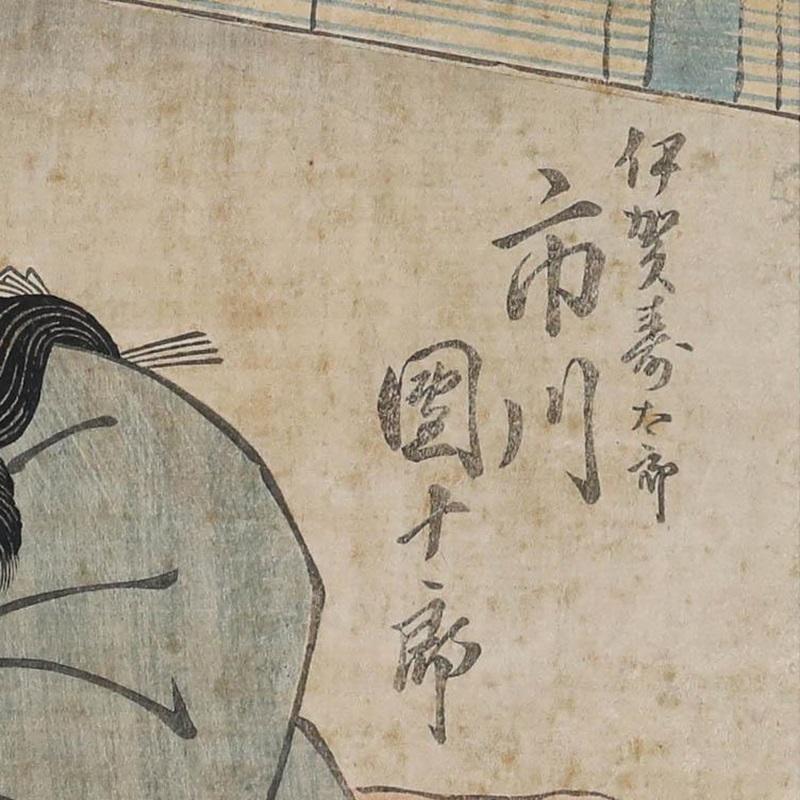 伊賀寿太郎
市川
團十郎